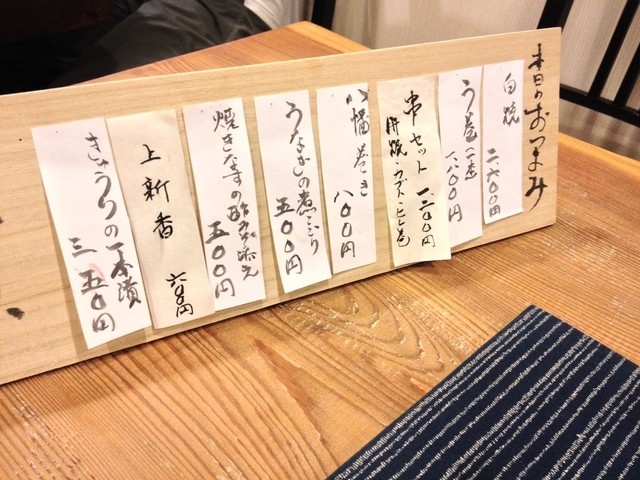 本日のおつまみ
白焼
二、六〇〇円
う巻(一本)
一、八〇〇円
串セット 一、二〇〇円
肝焼 カブト ヒレ巻
八幡巻き
八〇〇円
うなぎの煮こごり
五〇〇円
焼きなすの酢みそ添え
五〇〇円
上新香
六五〇円
きゅうりの一本漬
三五〇円